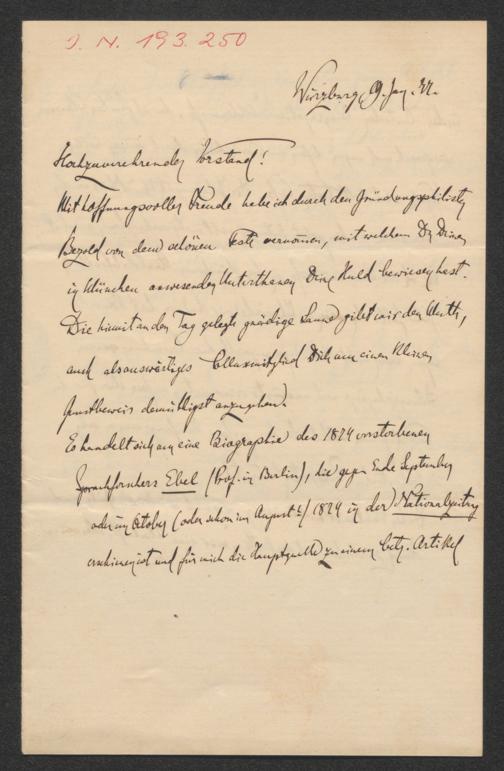 I. N. 193.250
Würzburg, 9. Jan.
Hochzuverehrender Vorstand!
Mit hoffnungsvoller Freude habe ich durch den Gründungsphilister
Bezold von dem schönen Feste vernommen, mit welchem Du Deinen
in München anwesenden Unterthanen Deine Huld bewiesen hast.
Die hiemit an den Tag gelegte gnädige Laune gibt mir den Muth,
auch als auswärtiges Dich um einen kleinen
Gunstbeweis demüthigst anzugehen.
Es handelt sich um eine Biographie des 1874 verstorbenen
Sprachforschers Ebel (Prof. in Berlin), die gegen Ende September
oder im Octob
er (oder schon im August?) 1874 in der Nationalzeitung
erschienen ist und für mich die Hauptquelle zu einem betr. Artikel